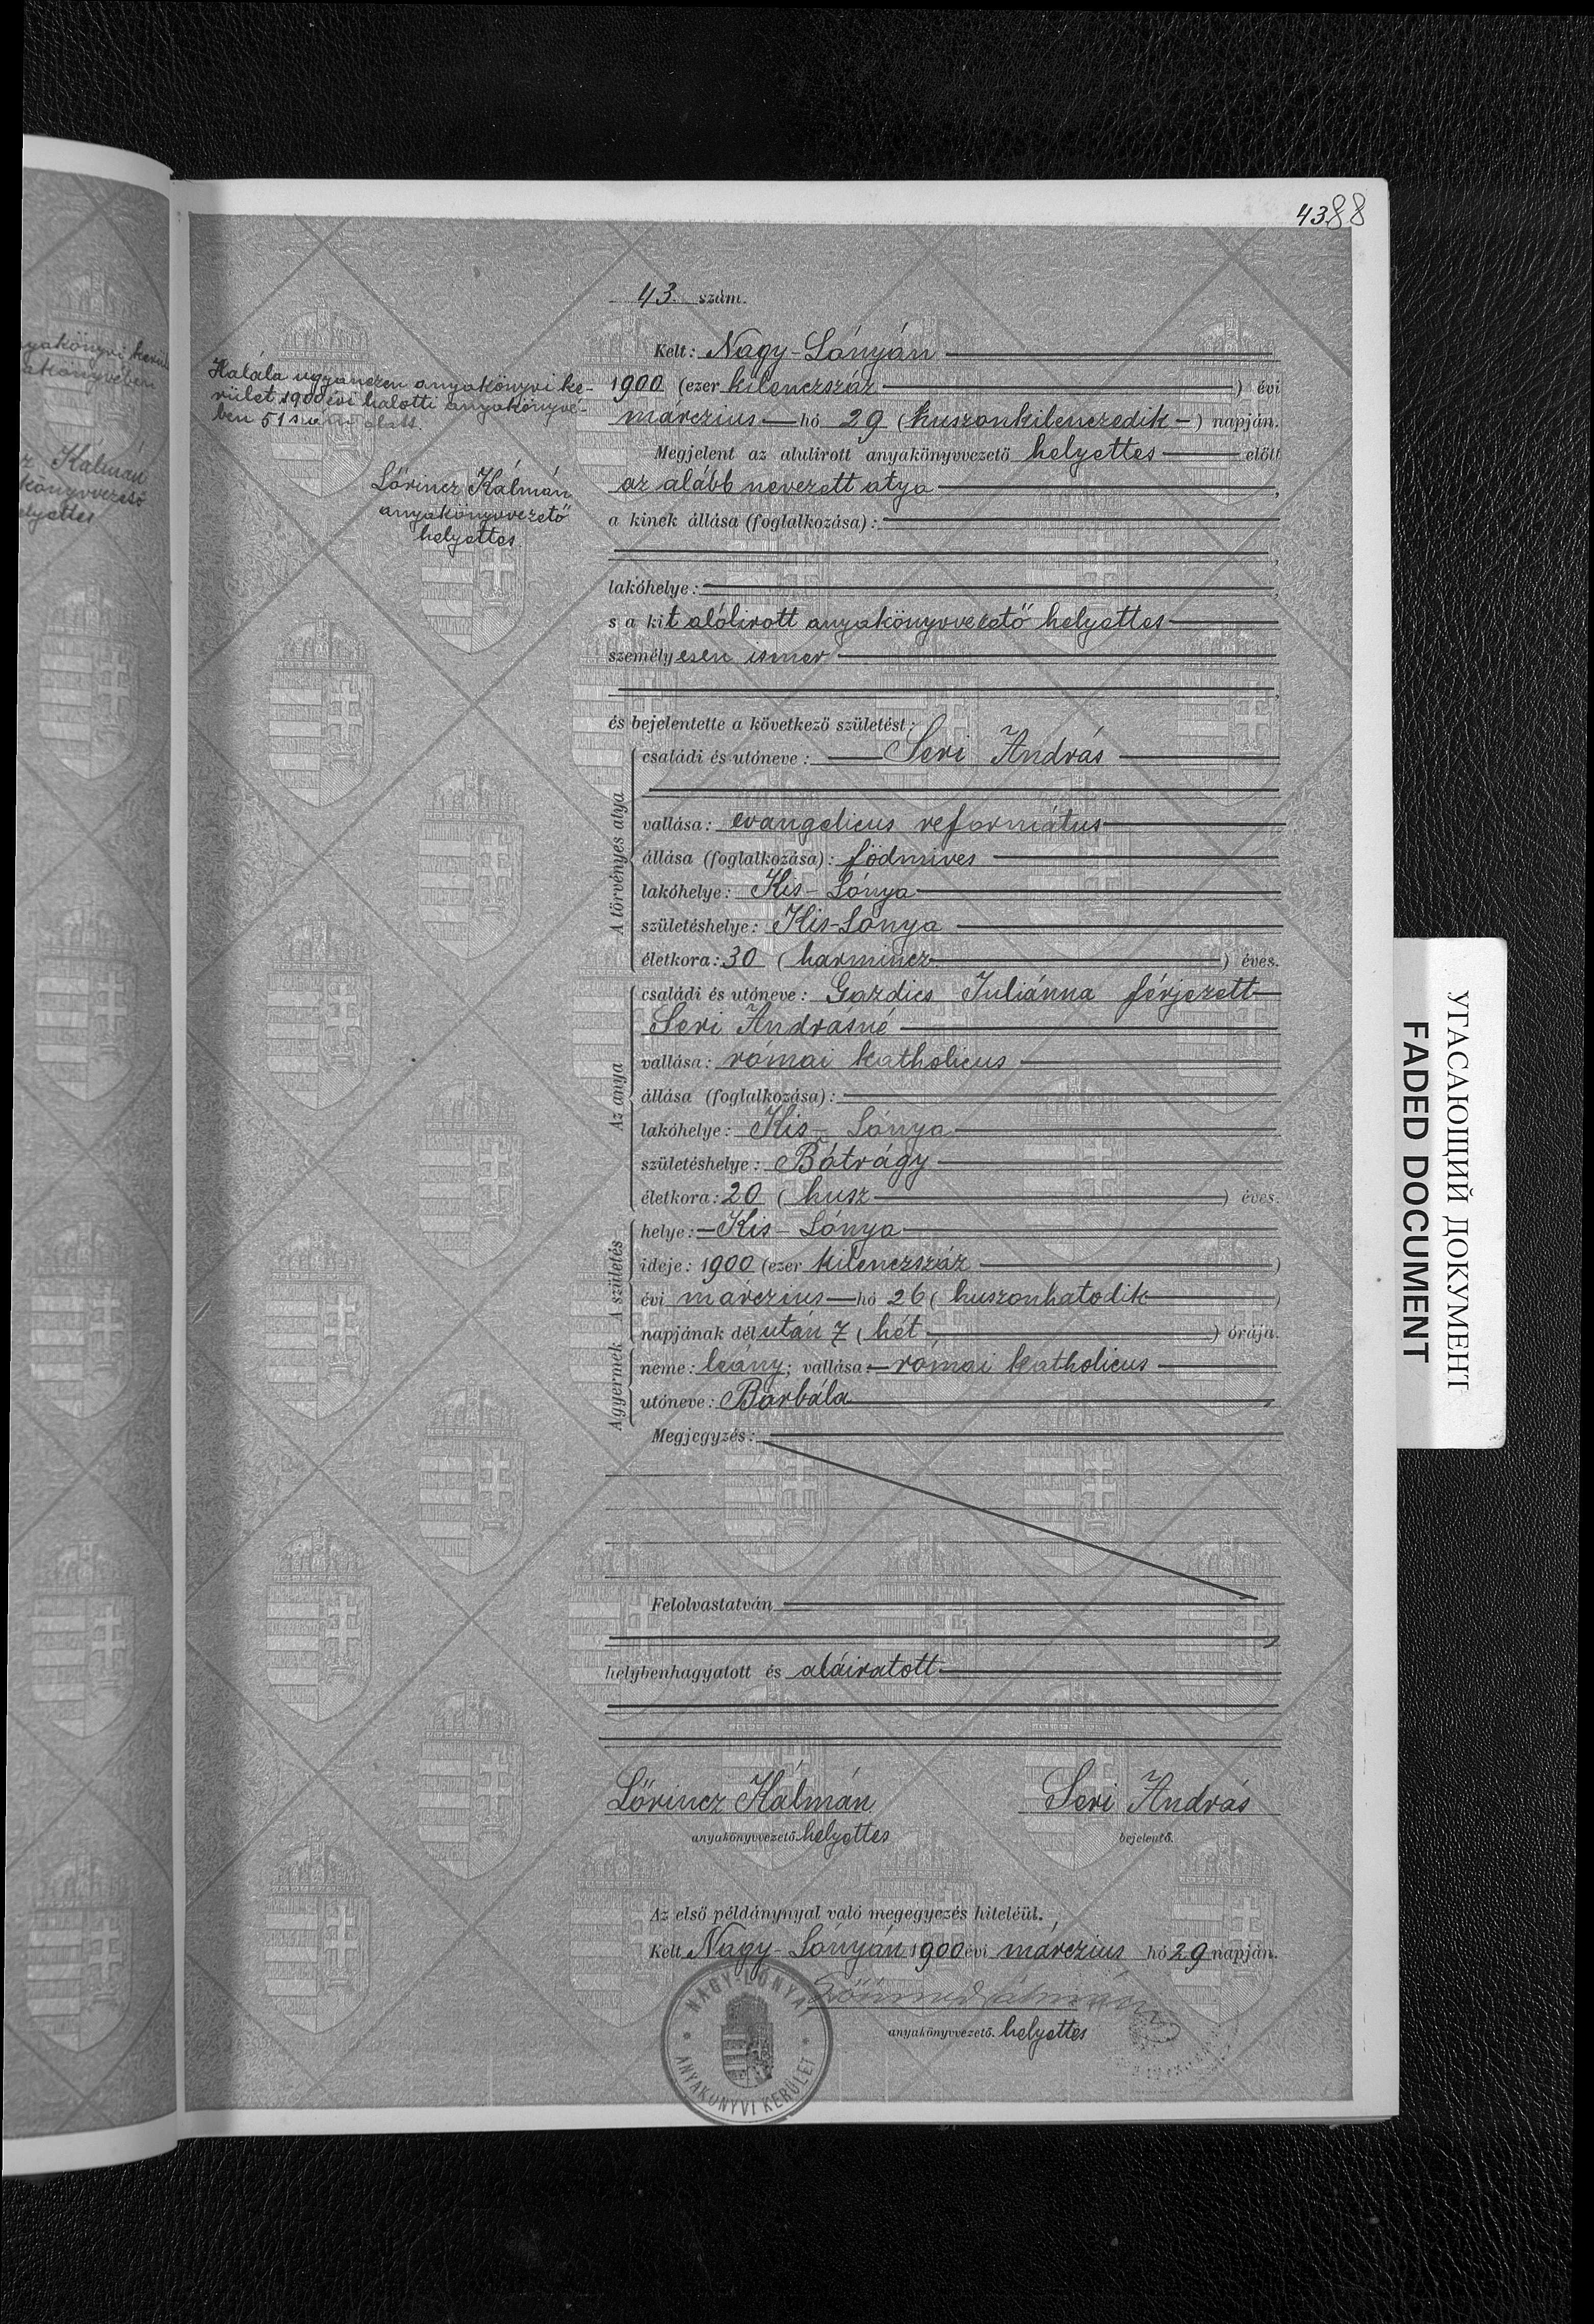 4388
43. szám.
Kelt: Nagy-Lónyán
1900 (ezer kilenczszáz) évi
márczius hó 29 (huszonkilenczedik) napján.
Megjelent az alulirott anyakönyvvezető helyettes előtt
az alább nevezett atya,
a kinek állása (foglalkozása):
lakóhelye:
s a kit alólirott anyakönyvvezető helyettes
személyesen ismer
és bejelentette a következő születést:
A törvényes atya
családi és utóneve: Seri András
vallása: evangelicus református
állása (foglalkozása): födmives
lakóhelye: Kis-Lónya
születéshelye: Kis-Lónya
életkora: 30 (harmincz) éves.
Az anya
családi és utóneve: Gazdics Juliánna férjezett
Seri Andrásné
vallása: római katholicus
állása (foglalkozása):
lakóhelye: Kis-Lónya
születéshelye: Bótrágy
életkora: 20 (husz) éves.
A születés
helye: Kis-Lónya
ideje: 1900 (ezer kilenczszáz)
évi márczius hó 26 (huszonhatodik)
napjának délután 7 (hét) órája.
A gyermek
neme: leány; vallása: római katholicus
utóneve: Borbála
Megjegyzés:
Felolvastatván
helybenhagyatott és aláiratott
Lőrincz Kálmán Seri András
anyakönyvvezető helyettes bejelentő.
Az első példánynyal való megegyezés hiteléül.
Kelt Nagy-Lónyán 1900 évi márczius hó 29 napján.
anyakönyvvezető. helyettes
NAGY-LÓNYA
ANYAKÖNYVI KERÜLET
Halála ugyanezen anyakönyvi ke-
rület 1900 évi halotti anyakönyvé-
ben 51 szám alatt.
Lőrincz Kálmán
anyakönyvvezető
helyettes
Kálmán
könyvvezető
helyettes
УГАСАЮЩИЙ ДОКУМЕНТ
FADED DOCUMENT